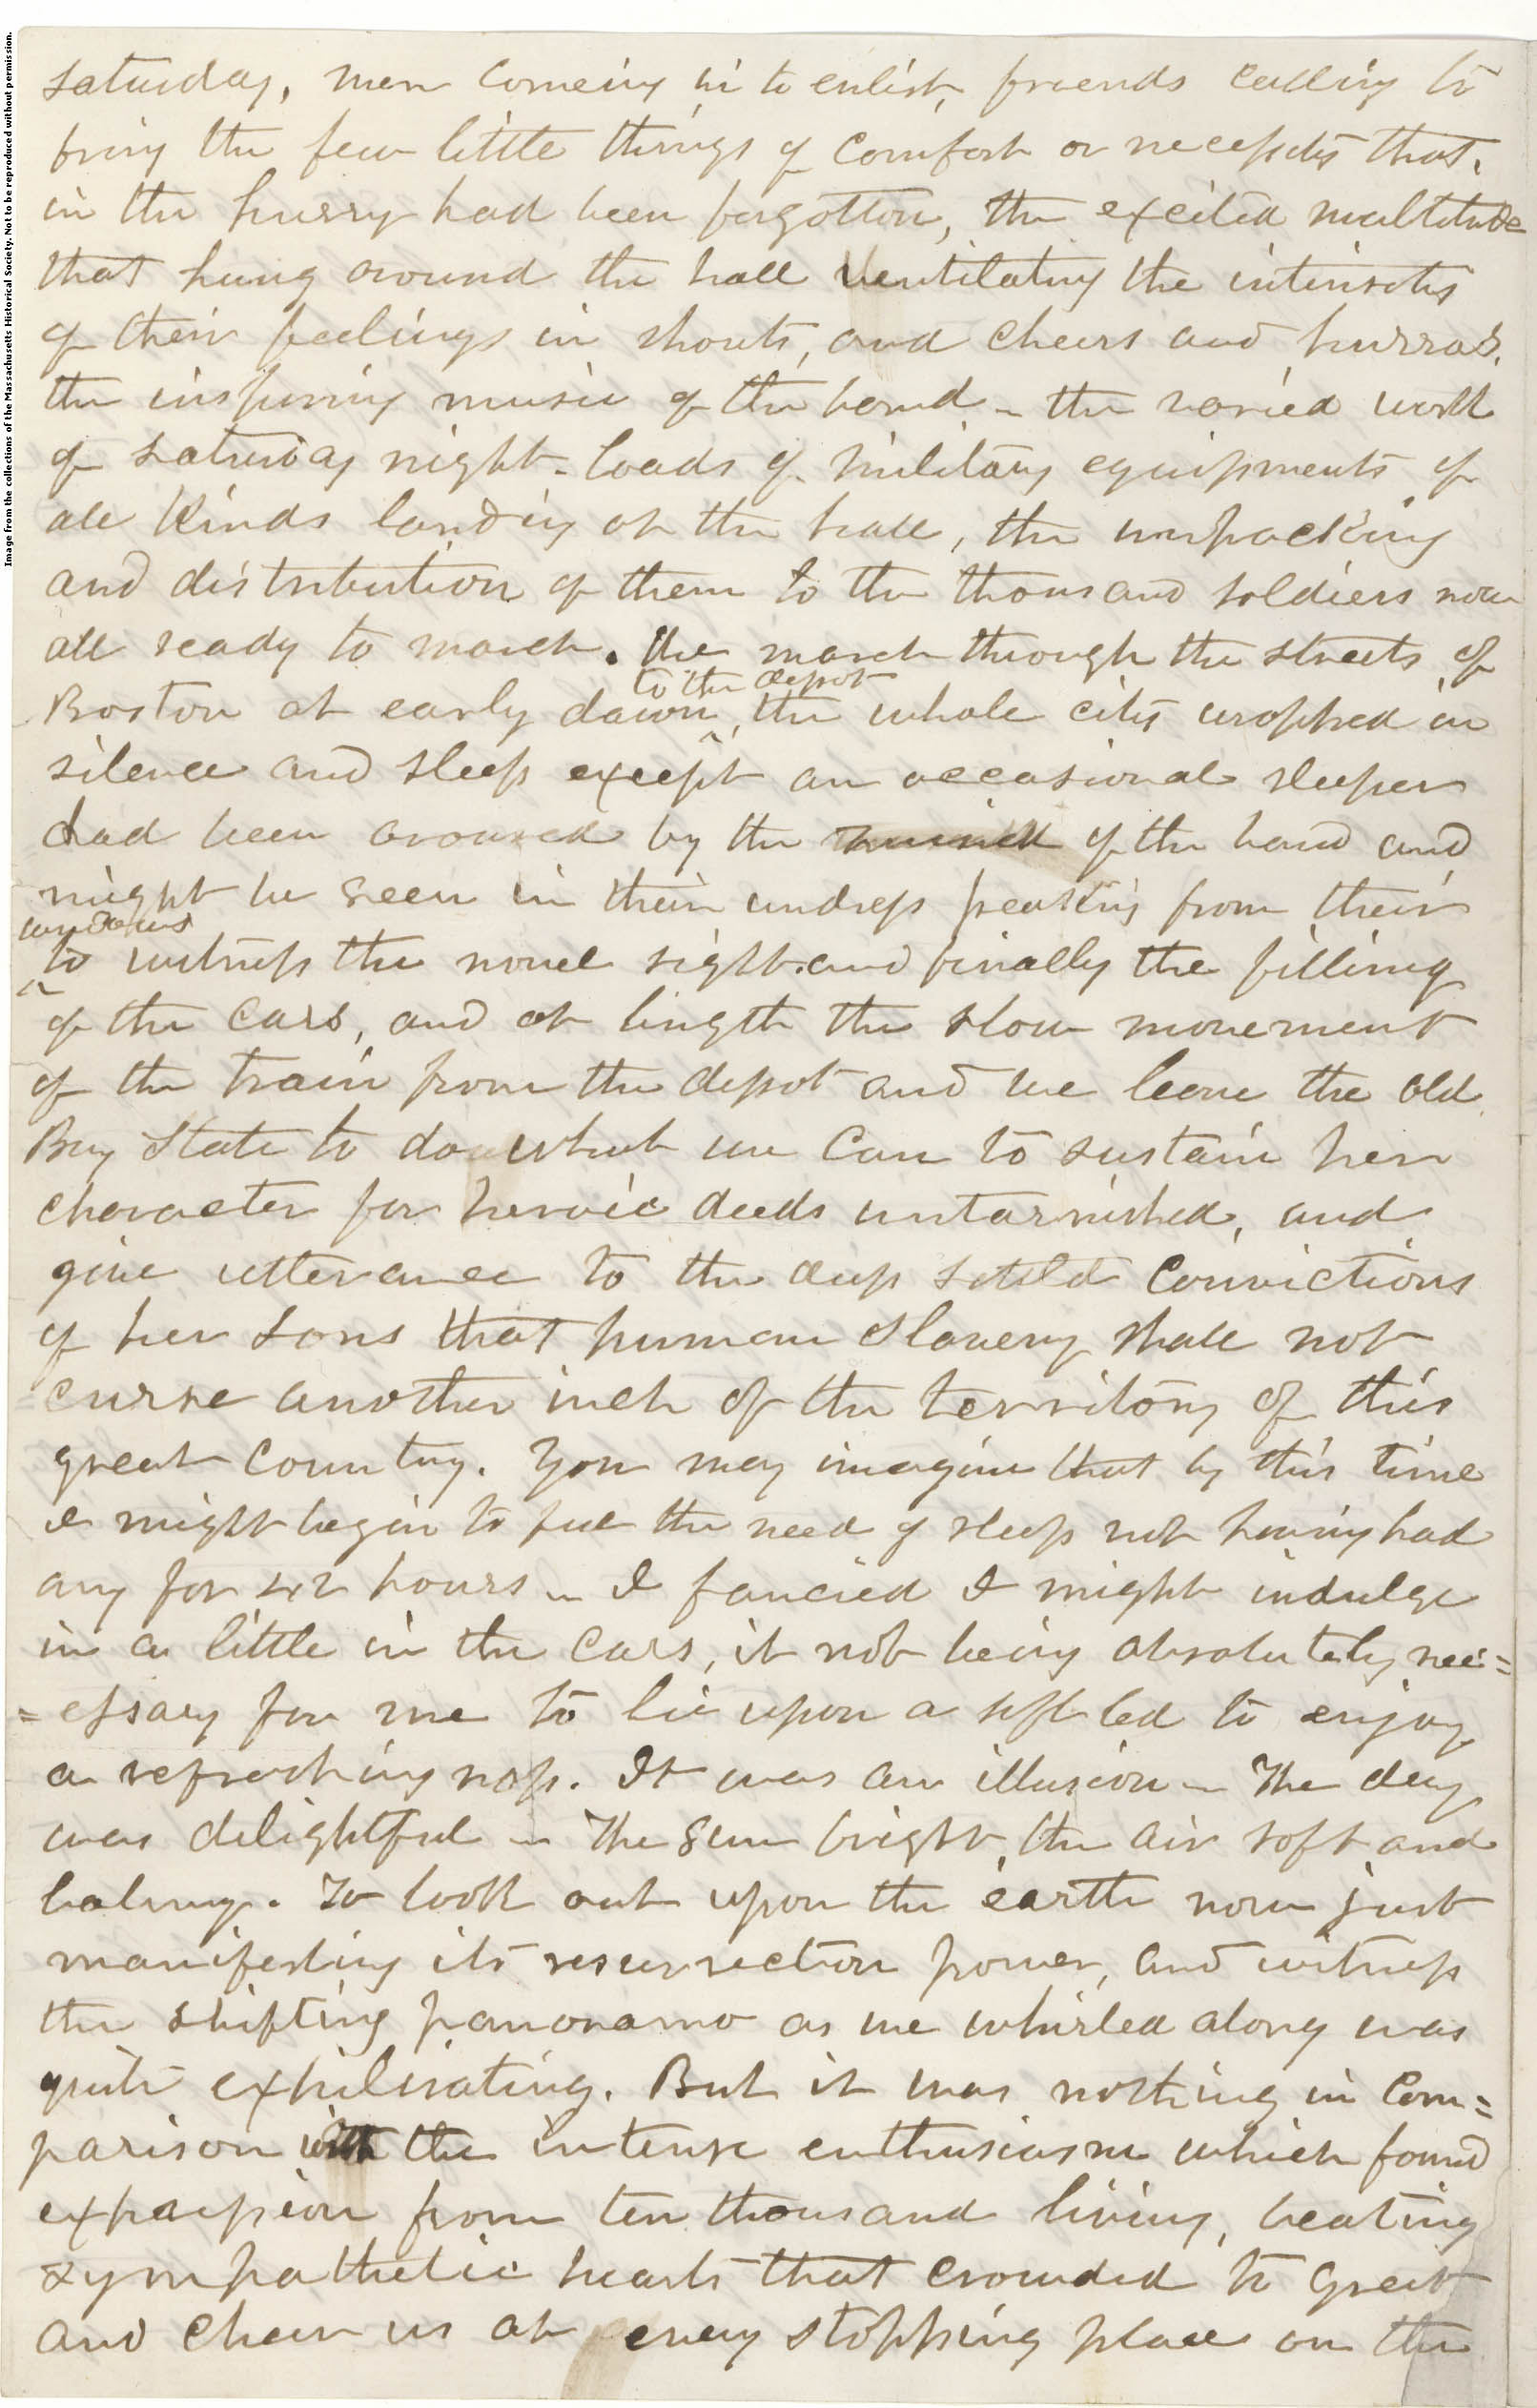 Image from the collections of the Massachusetts Historical Society. Not to be reproduced without permission.
Saturday, men comeing in to enlist, friends calling to
bring the few little things of comfort or necessity that,
in the hurry had been forgotten, the excited multitude
that hung around the hall ventilating the intensity
of their feelings in shouts, and cheers and hurras,
the inspiring music of the band – the varied work
of Saturday night – loads of military equipments of
all kinds landing at the hall, the unpacking
and distribution of them to the thousand soldiers now
all ready to march. the march through the streets of
to the depot
Boston at early dawn, the whole city wrapped in
silence and sleep except an occasional sleeper
had been aroused by the musick of the band and
might be seen in their undress peaking from their
windows
to witness the novel sight. and finally the filling
of the cars, and at length the slow movement
of the train from the depot and we leave the old
Bay State to do what we can to sustain her
character for heroic deeds untarnished, and
give utterance to the deep settld convictions
of her sons that human slavery shall not
curse another inch of the territory of this
great country. You may imagine that by this time
I might begin to feel the need of sleep not having had
any for 42 hours – I fancied I might indulge
in a little in the cars, it not being absolutely nec=
=essary for me to lie upon a soft bed to enjoy
a refreshing nap. It was an illusion – The day
was delightful – The sun bright, the air soft and
balmy. To look out upon the earth now just
manifesting its resurrection power, and witness
the shifting panoramo as we whirled along was
quite exhilirating. But it was nothing in com=
parison with the intense enthusiasm which found
expression from ten thousand living, beating
sympathetic hearts that crowded to greet
and cheer us at every stopping place on the